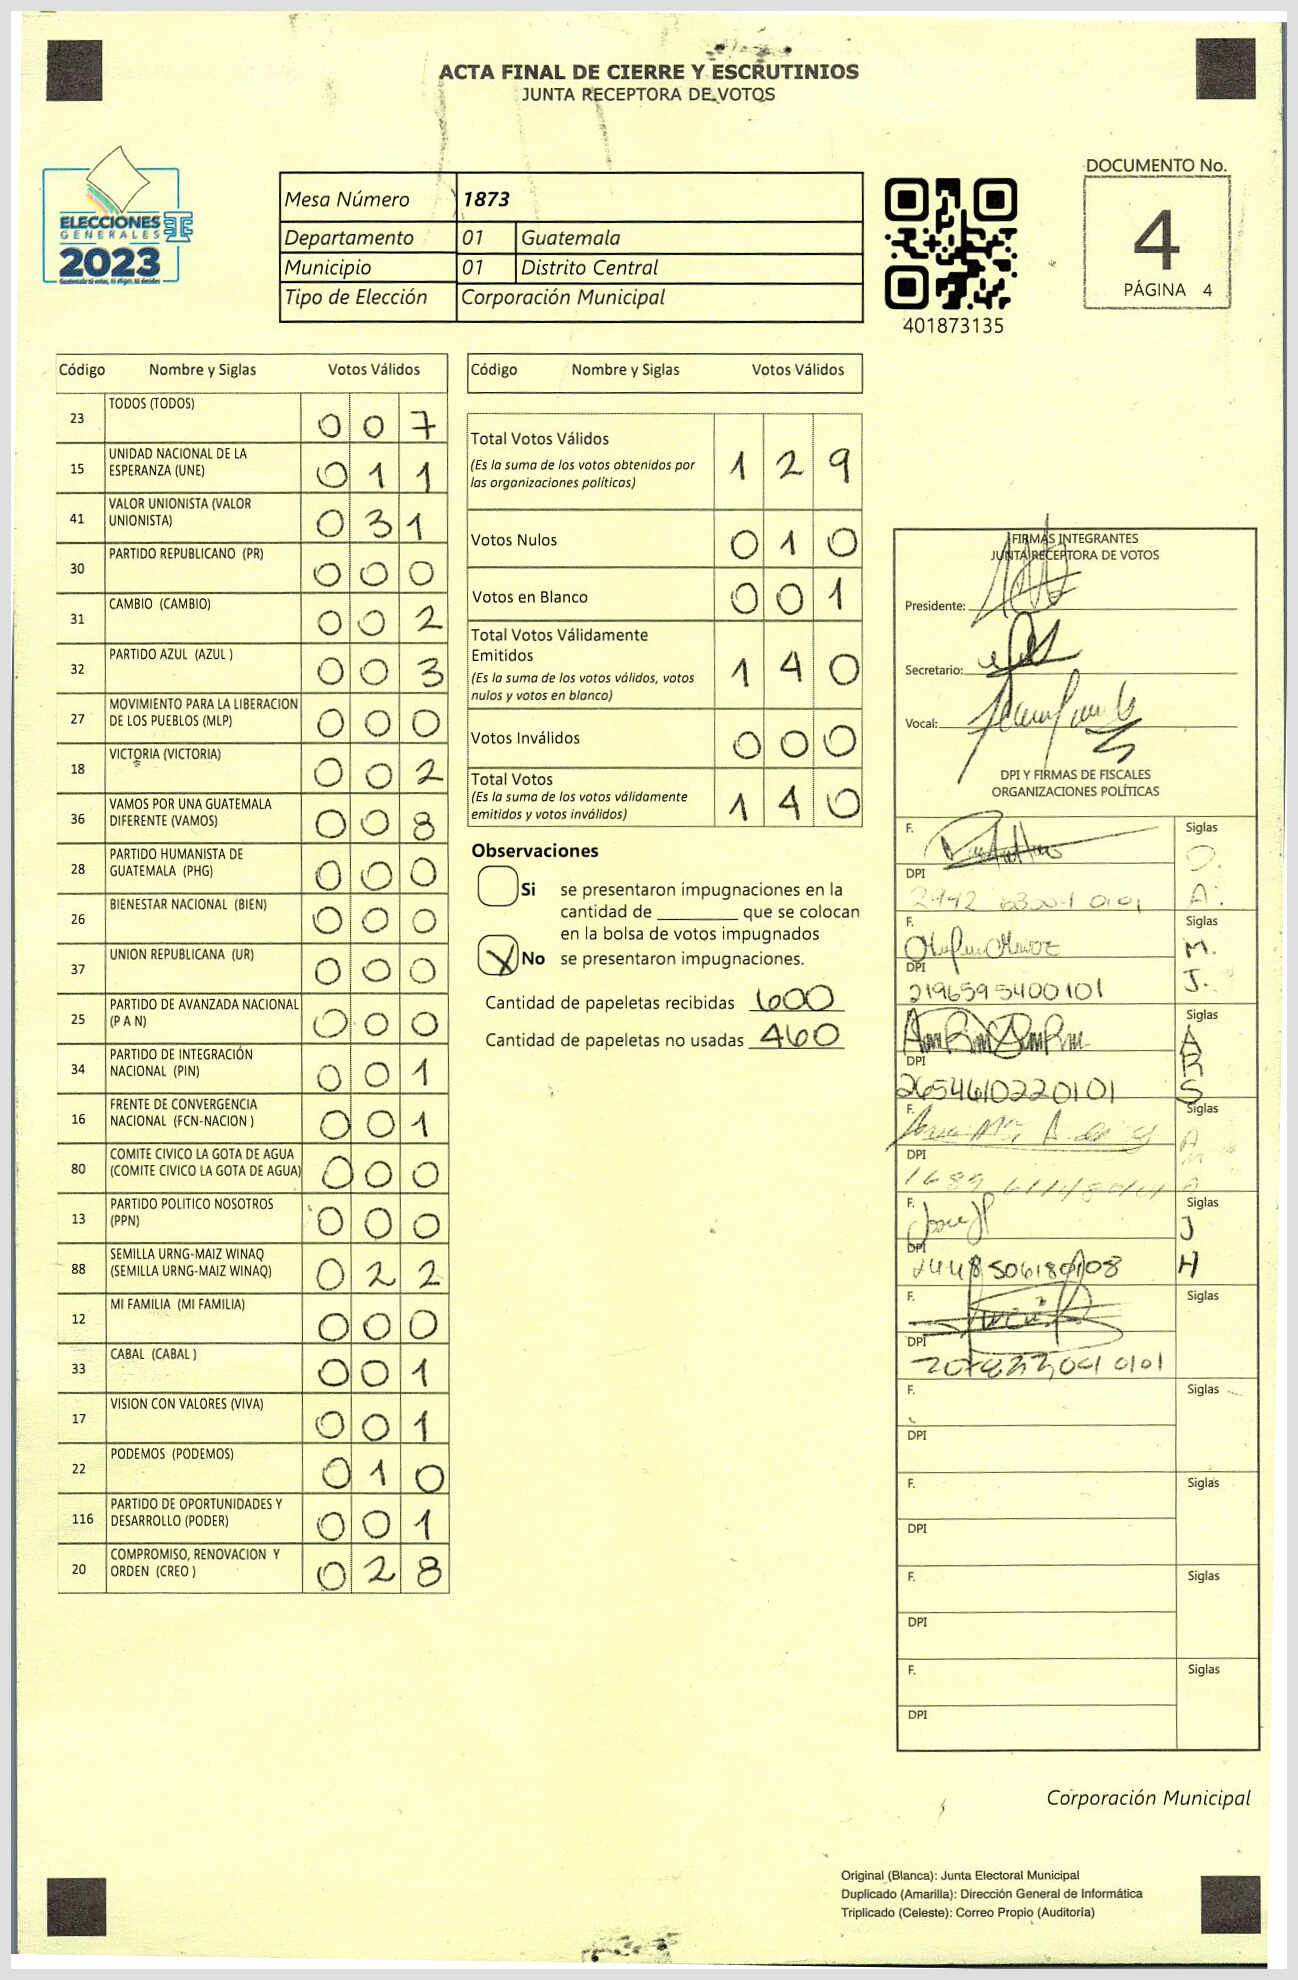 ACTA FINAL DE CIERRE Y ESCRUTINIOS
JUNTA RECEPTORA DE VOTOS
ELECCIONES
GENERALES
2023
Mesa Número 1873
Departamento 01 Guatemala
Municipio 01 Distrito Central
Tipo de Elección Corporación Municipal
401873135
DOCUMENTO No.
4
PÁGINA 4
Código Nombre y Siglas Votos Válidos
23 TODOS (TODOS) 0 0 7
15 UNIDAD NACIONAL DE LA
ESPERANZA (UNE) 0 1 1
41 VALOR UNIONISTA (VALOR
UNIONISTA) 0 3 1
30 PARTIDO REPUBLICANO (PR) 0 0 0
31 CAMBIO (CAMBIO) 0 0 2
32 PARTIDO AZUL (AZUL ) 0 0 3
27 MOVIMIENTO PARA LA LIBERACION
DE LOS PUEBLOS (MLP) 0 0 0
18 VICTORIA (VICTORIA) 0 0 2
36 VAMOS POR UNA GUATEMALA
DIFERENTE (VAMOS) 0 0 8
28 PARTIDO HUMANISTA DE
GUATEMALA (PHG) 0 0 0
26 BIENESTAR NACIONAL (BIEN) 0 0 0
37 UNION REPUBLICANA (UR) 0 0 0
25 PARTIDO DE AVANZADA NACIONAL
(P A N) 0 0 0
34 PARTIDO DE INTEGRACIÓN
NACIONAL (PIN) 0 0 1
16 FRENTE DE CONVERGENCIA
NACIONAL (FCN-NACION ) 0 0 1
80 COMITE CIVICO LA GOTA DE AGUA
(COMITE CIVICO LA GOTA DE AGUA) 0 0 0
13 PARTIDO POLITICO NOSOTROS
(PPN) 0 0 0
88 SEMILLA URNG-MAIZ WINAQ
(SEMILLA URNG-MAIZ WINAQ) 0 2 2
12 MI FAMILIA (MI FAMILIA) 0 0 0
33 CABAL (CABAL ) 0 0 1
17 VISION CON VALORES (VIVA) 0 0 1
22 PODEMOS (PODEMOS) 0 1 0
116 PARTIDO DE OPORTUNIDADES Y
DESARROLLO (PODER) 0 0 1
20 COMPROMISO, RENOVACION Y
ORDEN (CREO ) 0 2 8
Código Nombre y Siglas Votos Válidos
Total Votos Válidos 1 2 9
(Es la suma de los votos obtenidos por
las organizaciones políticas)
Votos Nulos 0 1 0
Votos en Blanco 0 0 1
Total Votos Válidamente
Emitidos 1 4 0
(Es la suma de los votos válidos, votos
nulos y votos en blanco)
Votos Inválidos 0 0 0
Total Votos 1 4 0
(Es la suma de los votos válidamente
emitidos y votos inválidos)
Observaciones
Si se presentaron impugnaciones en la
cantidad de ________ que se colocan
en la bolsa de votos impugnados
X No se presentaron impugnaciones.
Cantidad de papeletas recibidas 600
Cantidad de papeletas no usadas 460
FIRMAS INTEGRANTES
JUNTA RECEPTORA DE VOTOS
Presidente:
Secretario:
Vocal:
DPI Y FIRMAS DE FISCALES
ORGANIZACIONES POLÍTICAS
F. Siglas
DPI
F. Siglas M.
DPI J.
2196595400101
F. Siglas A
DPI R
2654610220101 S
F. Siglas
DPI
F. Siglas J
DPI H
F. Siglas
DPI
F. Siglas
DPI
F. Siglas
DPI
F. Siglas
DPI
F. Siglas
DPI
Corporación Municipal
Original (Blanca): Junta Electoral Municipal
Duplicado (Amarilla): Dirección General de Informática
Triplicado (Celeste): Correo Propio (Auditoría)